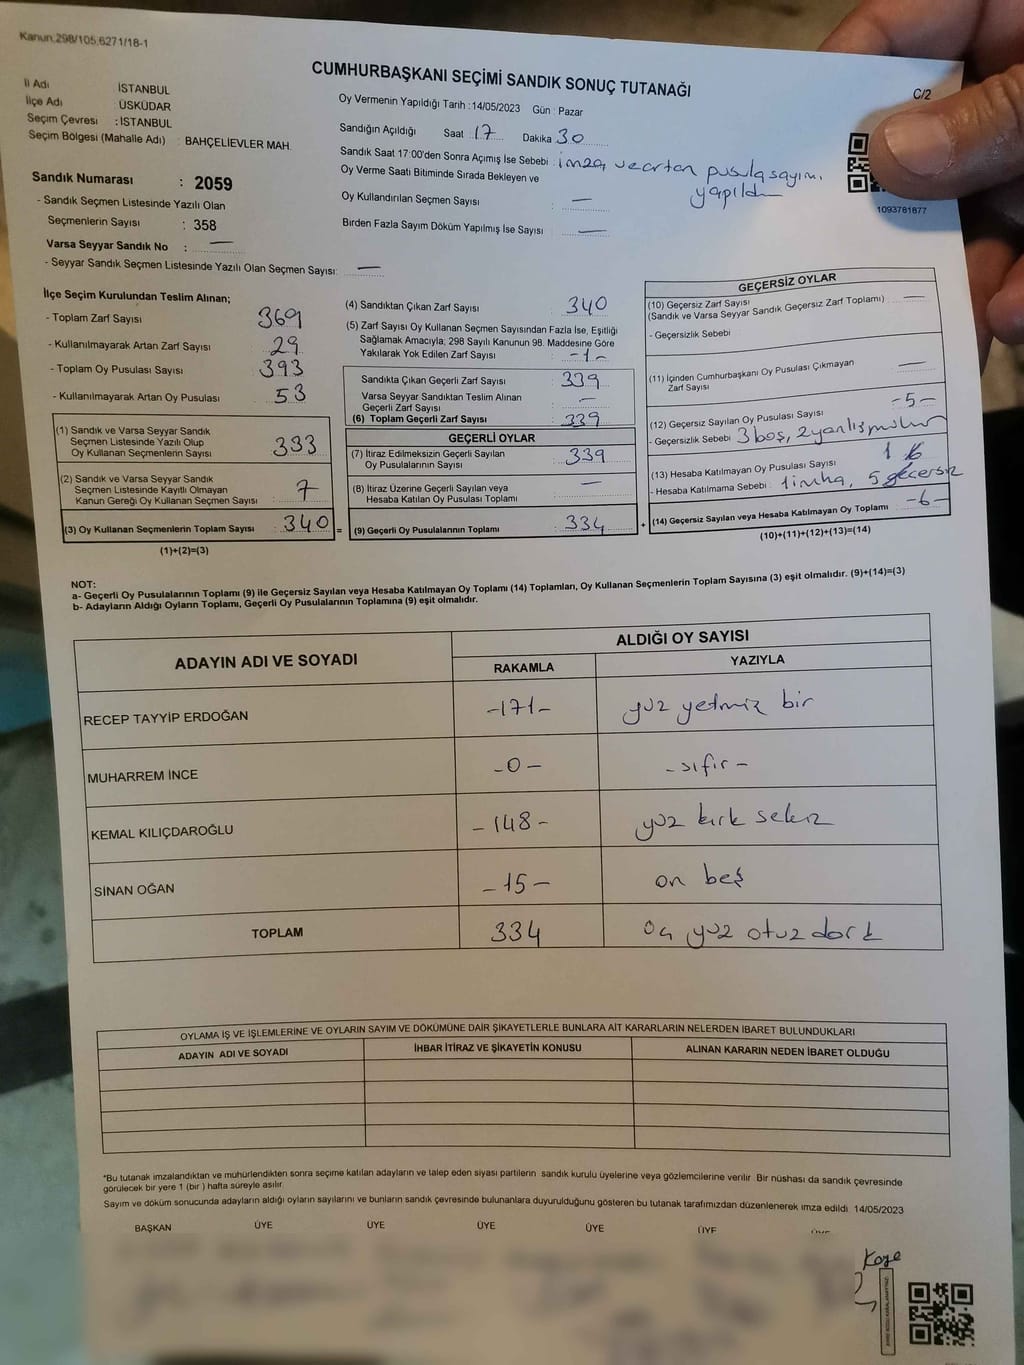 Kanun:298/105;6271/18-1
CUMHURBAŞKANI SEÇİMİ SANDIK SONUÇ TUTANAĞI
C/2
İl Adı İSTANBUL
İlçe Adı ÜSKÜDAR
Seçim Çevresi : İSTANBUL
Seçim Bölgesi (Mahalle Adı) : BAHÇELİEVLER MAH.
Sandık Numarası : 2059
- Sandık Seçmen Listesinde Yazılı Olan
Seçmenlerin Sayısı : 358
Varsa Seyyar Sandık No : —
- Seyyar Sandık Seçmen Listesinde Yazılı Olan Seçmen Sayısı: —
Oy Vermenin Yapıldığı Tarih :14/05/2023 Gün : Pazar
Sandığın Açıldığı Saat : 17 Dakika 30
Sandık Saat 17:00'den Sonra Açımış İse Sebebi : imza ve artan pusula sayım.
yapıldı
Oy Verme Saati Bitiminde Sırada Bekleyen ve
Oy Kullandırılan Seçmen Sayısı : —
Birden Fazla Sayım Döküm Yapılmış İse Sayısı : —
1093781877
İlçe Seçim Kurulundan Teslim Alınan;
- Toplam Zarf Sayısı 369
- Kullanılmayarak Artan Zarf Sayısı 29
- Toplam Oy Pusulası Sayısı 393
- Kullanılmayarak Artan Oy Pusulası : 53
(1) Sandık ve Varsa Seyyar Sandık
Seçmen Listesinde Yazılı Olup
Oy Kullanan Seçmenlerin Sayısı : 333
(2) Sandık ve Varsa Seyyar Sandık
Seçmen Listesinde Kayıtlı Olmayan
Kanun Gereği Oy Kullanan Seçmen Sayısı : 7
(3) Oy Kullanan Seçmenlerin Toplam Sayısı : 340 =
(1)+(2)=(3)
(4) Sandıktan Çıkan Zarf Sayısı 340
(5) Zarf Sayısı Oy Kullanan Seçmen Sayısından Fazla İse, Eşitliği
Sağlamak Amacıyla; 298 Sayılı Kanunun 98. Maddesine Göre
Yakılarak Yok Edilen Zarf Sayısı -1-
Sandıkta Çıkan Geçerli Zarf Sayısı : 339
Varsa Seyyar Sandıktan Teslim Alınan
Geçerli Zarf Sayısı : —
(6) Toplam Geçerli Zarf Sayısı : 339
GEÇERLİ OYLAR
(7) İtiraz Edilmeksizin Geçerli Sayılan
Oy Pusulalarının Sayısı : 339
(8) İtiraz Üzerine Geçerli Sayılan veya
Hesaba Katılan Oy Pusulası Toplamı : —
(9) Geçerli Oy Pusulalarının Toplamı : 334 +
GEÇERSİZ OYLAR
(10) Geçersiz Zarf Sayısı
(Sandık ve Varsa Seyyar Sandık Geçersiz Zarf Toplamı) : —
- Geçersizlik Sebebi
(11) İçinden Cumhurbaşkanı Oy Pusulası Çıkmayan
Zarf Sayısı —
(12) Geçersiz Sayılan Oy Pusulası Sayısı -5-
- Geçersizlik Sebebi 3 boş, 2 yanlış mühür
(13) Hesaba Katılmayan Oy Pusulası Sayısı 1
- Hesaba Katılmama Sebebi : 1 imha, 5 geçersiz
(14) Geçersiz Sayılan veya Hesaba Katılmayan Oy Toplamı : -6-
(10)+(11)+(12)+(13)=(14)
NOT:
a- Geçerli Oy Pusulalarının Toplamı (9) ile Geçersiz Sayılan veya Hesaba Katılmayan Oy Toplamı (14) Toplamları, Oy Kullanan Seçmenlerin Toplam Sayısına (3) eşit olmalıdır. (9)+(14)=(3)
b- Adayların Aldığı Oyların Toplamı, Geçerli Oy Pusulalarının Toplamına (9) eşit olmalıdır.
ADAYIN ADI VE SOYADI ALDIĞI OY SAYISI
RAKAMLA YAZIYLA
RECEP TAYYİP ERDOĞAN -171- yüz yetmiz bir
MUHARREM İNCE -0- -sıfır-
KEMAL KILIÇDAROĞLU -148- yüz kırk sekiz
SİNAN OĞAN -15- on beş
TOPLAM 334 üç yüz otuz dört
OYLAMA İŞ VE İŞLEMLERİNE VE OYLARIN SAYIM VE DÖKÜMÜNE DAİR ŞİKAYETLERLE BUNLARA AİT KARARLARIN NELERDEN İBARET BULUNDUKLARI
ADAYIN ADI VE SOYADI İHBAR İTİRAZ VE ŞİKAYETİN KONUSU ALINAN KARARIN NEDEN İBARET OLDUĞU
*Bu tutanak imzalandıktan ve mühürlendikten sonra seçime katılan adayların ve talep eden siyasi partilerin sandık kurulu üyelerine veya gözlemcilerine verilir. Bir nüshası da sandık çevresinde
görülecek bir yere 1 (bir ) hafta süreyle asılır.
Sayım ve döküm sonucunda adayların aldığı oyların sayılarını ve bunların sandık çevresinde bulunanlara duyurulduğunu gösteren bu tutanak tarafımızdan düzenlenerek imza edildi. 14/05/2023
BAŞKAN ÜYE ÜYE ÜYE ÜYE ÜYE ÜYE
Köse